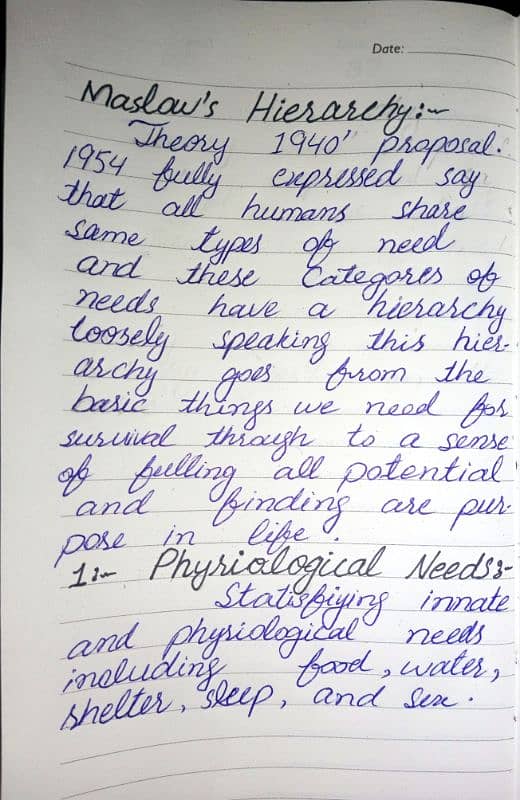 Date:
Maslow's Hierarchy:-
Theory 1940' proposal.
1954 fully expressed say
that all humans share
same types of need
and these Categores of
needs have a hierarchy
loosely speaking this hier-
archy goes from the
basic things we need for
survival through to a sense
of fulling all potential
and finding are pur-
pose in life.
1:- Physiological Needs:-
Statisfiying innate
and physiological needs
including food, water,
shelter, sleep, and sex.